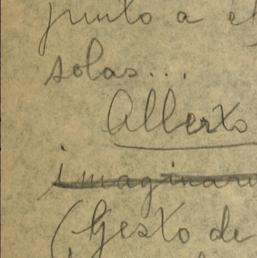 junto a el
solas...
Alberto
imaginari
(Gesto de